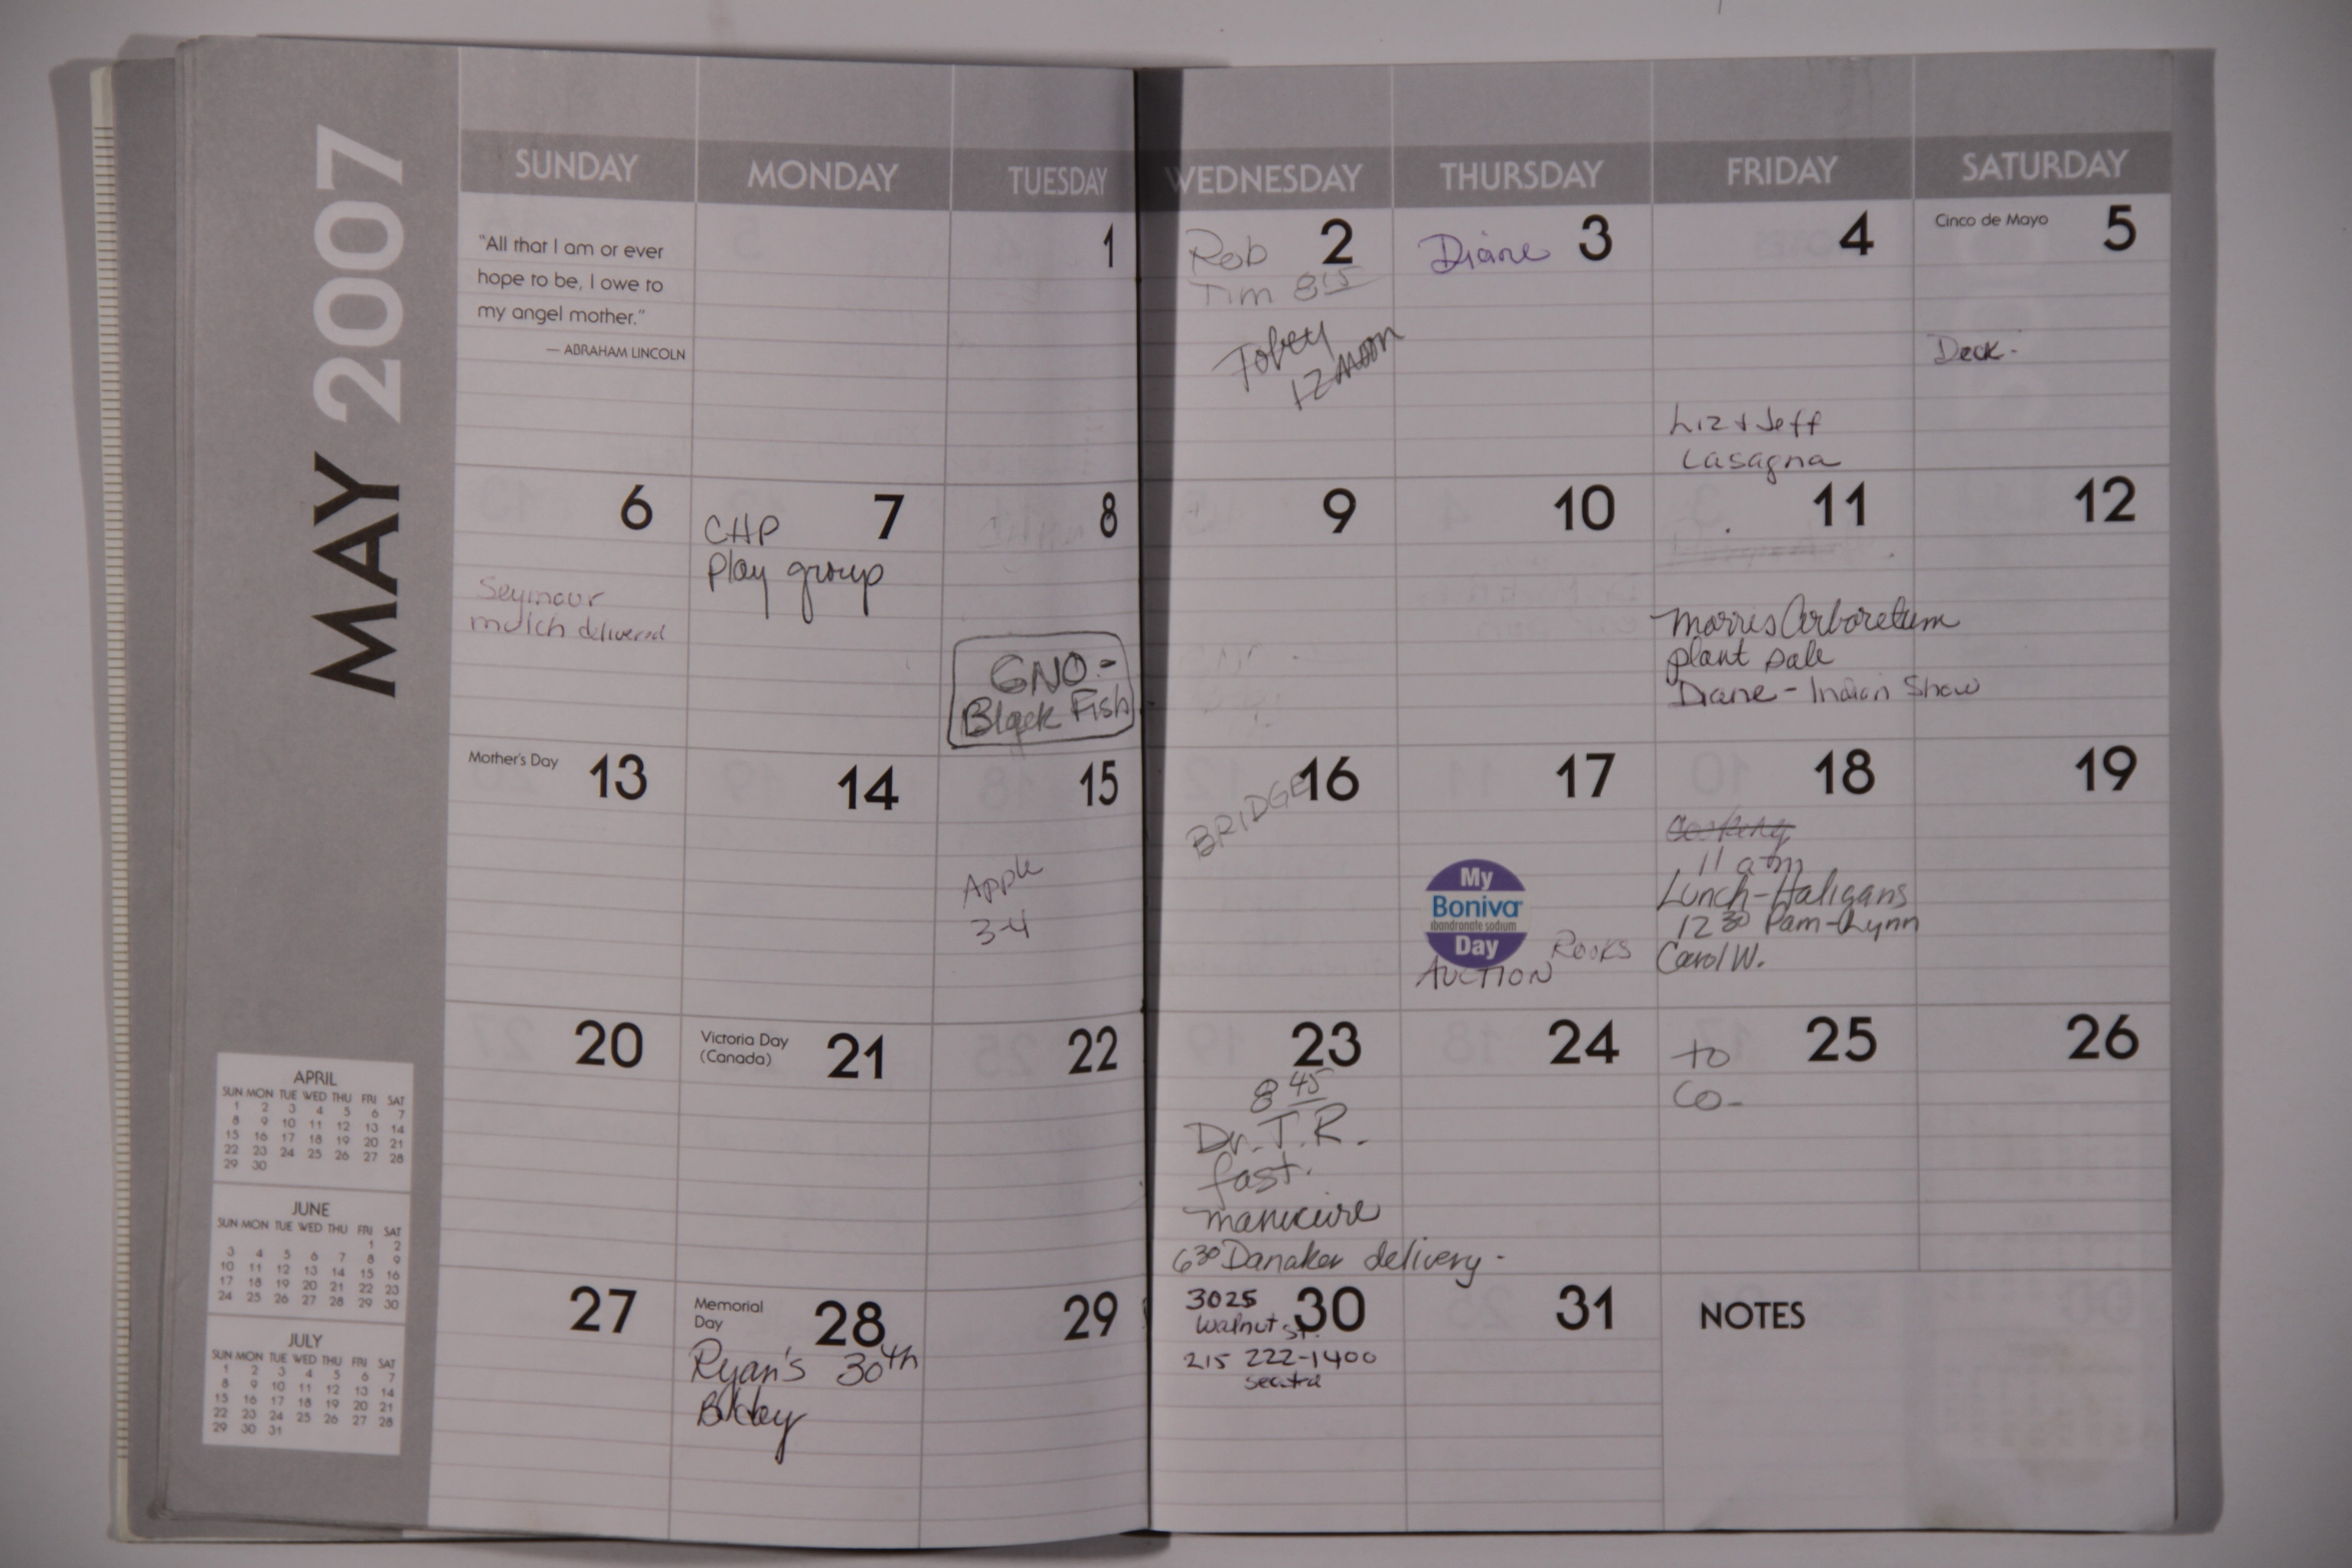 MAY 2007
SUNDAY MONDAY TUESDAY WEDNESDAY THURSDAY FRIDAY SATURDAY
"All that I am or ever
hope to be, I owe to
my angel mother."
— ABRAHAM LINCOLN
1
2
Rob
Tim 8 15
Tobey
12 noon
3
Diane
4
Liz + Jeff
Lasagna
Cinco de Mayo 5
Deck -
6
Seymour
mulch delivered
7
CHP
Play group
8
GNO -
Black Fish
9
10
11
Morris Arboretum
plant sale
Diane - Indian Show
12
Mother's Day 13
14
15
Apple
3-4
16
BRIDGE
17
My
Boniva
ibandronate sodium
Day
Rooks
AUCTION
18
11 am
Lunch - Haligans
12 30 Pam - Lynn
Carol W.
19
20
Victoria Day
(Canada)
21
22
23
8 45
Dr. T. R.
fast.
manicure
6 30 Danaker delivery -
24
25
to
CO -
26
27
Memorial
Day
28
Ryan's 30th
Bday
29
30
3025
Walnut St.
215 222-1400
31
NOTES
APRIL
SUN MON TUE WED THU FRI SAT
1 2 3 4 5 6 7
8 9 10 11 12 13 14
15 16 17 18 19 20 21
22 23 24 25 26 27 28
29 30
JUNE
SUN MON TUE WED THU FRI SAT
1 2
3 4 5 6 7 8 9
10 11 12 13 14 15 16
17 18 19 20 21 22 23
24 25 26 27 28 29 30
JULY
SUN MON TUE WED THU FRI SAT
1 2 3 4 5 6 7
8 9 10 11 12 13 14
15 16 17 18 19 20 21
22 23 24 25 26 27 28
29 30 31